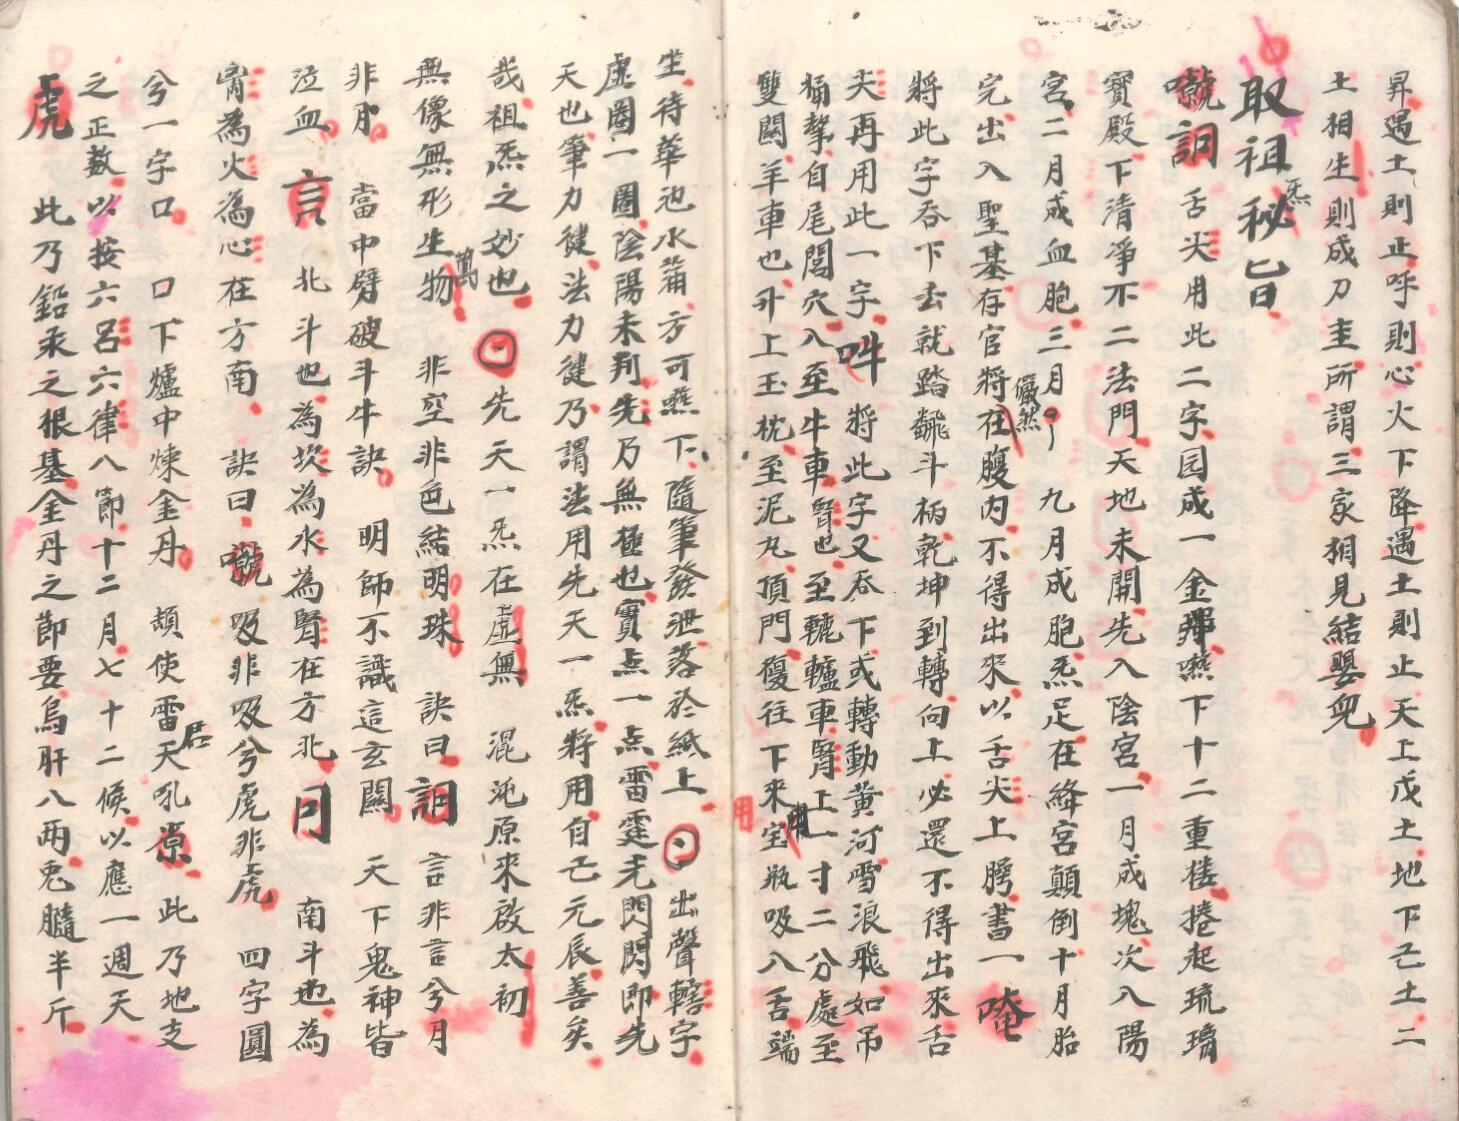 昇遇土則止呼則心火下降遇土則止天上戊土地下己土二
土相生則成刀圭所謂三家相見結嬰兒
取祖炁秘旨
𪆴詷 舌尖用此二字园成一金彈嚥下十二重楼捲起琉璃
寳殿下清凈不二法門天地未開先入陰宮一月成塊次入陽
宮二月成血胞三月儼然 九月成胞炁足在絳宮顛倒十月胎
完出入聖基存官將在腹内不得出來以舌尖上腭書一唵
將此字吞下去就踏飜斗柄乾坤到轉向上必還不得出來舌
尖再用此一字吽 將此字又吞下或轉動黃河雪浪飛如吊
桶挈自尾閭穴入至牛車腎也至轆轤車腎上一寸二分處至
雙關羊車也升上玉枕至泥丸頂門復往下來宝瓶用吸入舌端
坐待華池水滿方可嚥下隨筆發泄落於紙上 出聲轄字
虛圈一圈陰陽未判先乃無極也實点一点雷霆光閃閃即先
天也筆力健法力健乃謂法用先天一炁將用自己元辰善矣
哉祖炁之妙也 先天一炁在虛無 混沌原來啟太初
無像無形生萬物 非空非色結明珠 訣曰詷 言非言兮月
非月 當中劈破斗牛訣 明師不識這玄關 天下鬼神皆
泣血 言 北斗也為坎為水為腎在方北 同 南斗也為
胃為火為心在方南 訣曰 吸非吸兮虎非虎 四字圓
兮一字口 口下爐中煉金丹 頡使雷天君吼原 此乃地支
之正數以按六呂六律八節十二月七十二候以應一週天
虎 此乃鉛汞之根基金丹之節要烏肝八兩兎髓半斤